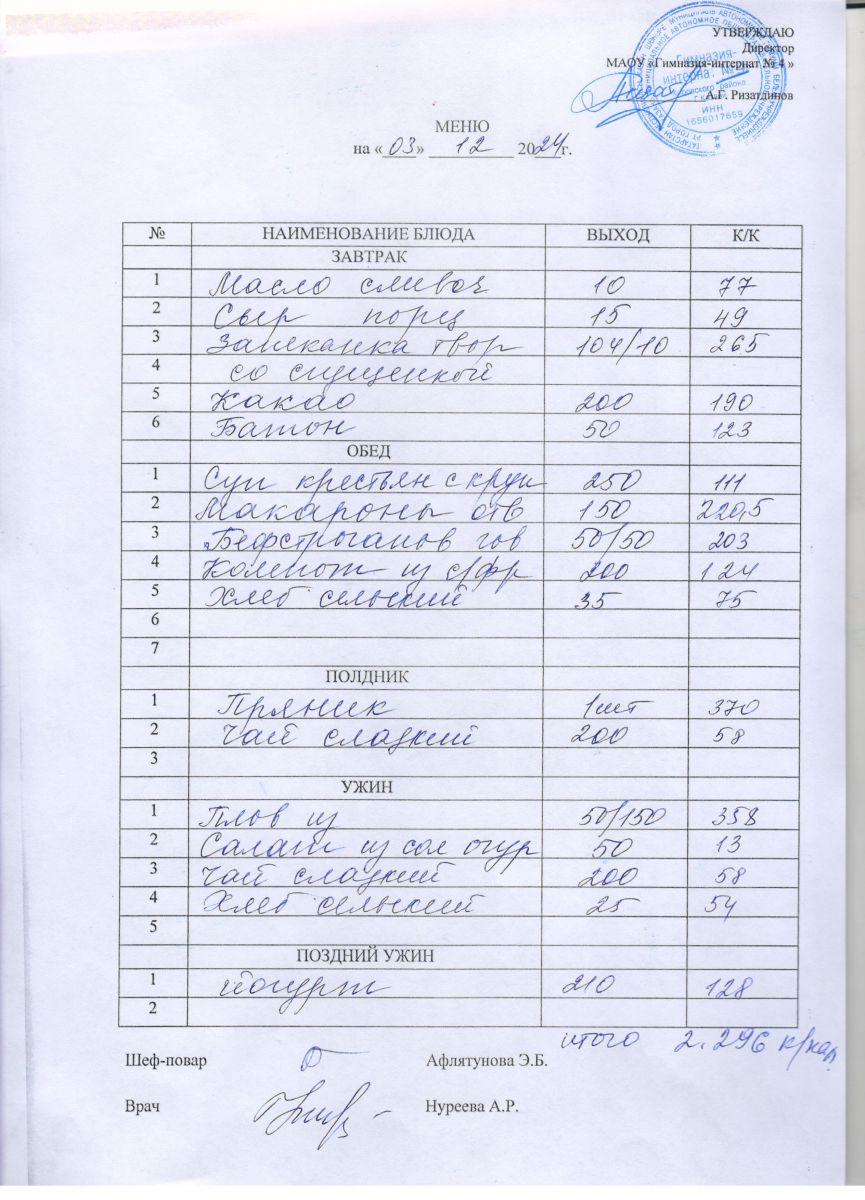 УТВЕРЖДАЮ
Директор
МАОУ «Гимназия-интернат № 4 »
А.Г. Ризатдинов
Гимназия-
ИНН
1656017659
МЕНЮ
на « 03 » 12 2024г.
№ НАИМЕНОВАНИЕ БЛЮДА ВЫХОД К/К
ЗАВТРАК
1 Масло сливоч 10 77
2 Сыр порц 15 49
3 Запеканка твор 104/10 265
4 со сгущенкой
5 Какао 200 190
6 Батон 50 123
ОБЕД
1 Суп крестьян с круп 250 111
2 Макароны отв 150 220,5
3 Бефстроганов гов 50/50 203
4 Компот из с/фр 200 124
5 Хлеб сельский 35 75
6
7
ПОЛДНИК
1 Пряник 1шт 370
2 Чай сладкий 200 58
3
УЖИН
1 Плов из 50/150 358
2 Салат из сол огур 50 13
3 Чай сладкий 200 58
4 Хлеб сельский 25 54
5
ПОЗДНИЙ УЖИН
1 йогурт 210 128
2
итого 2.296 к/кал
Шеф-повар Афлятунова Э.Б.
Врач Нуреева А.Р.